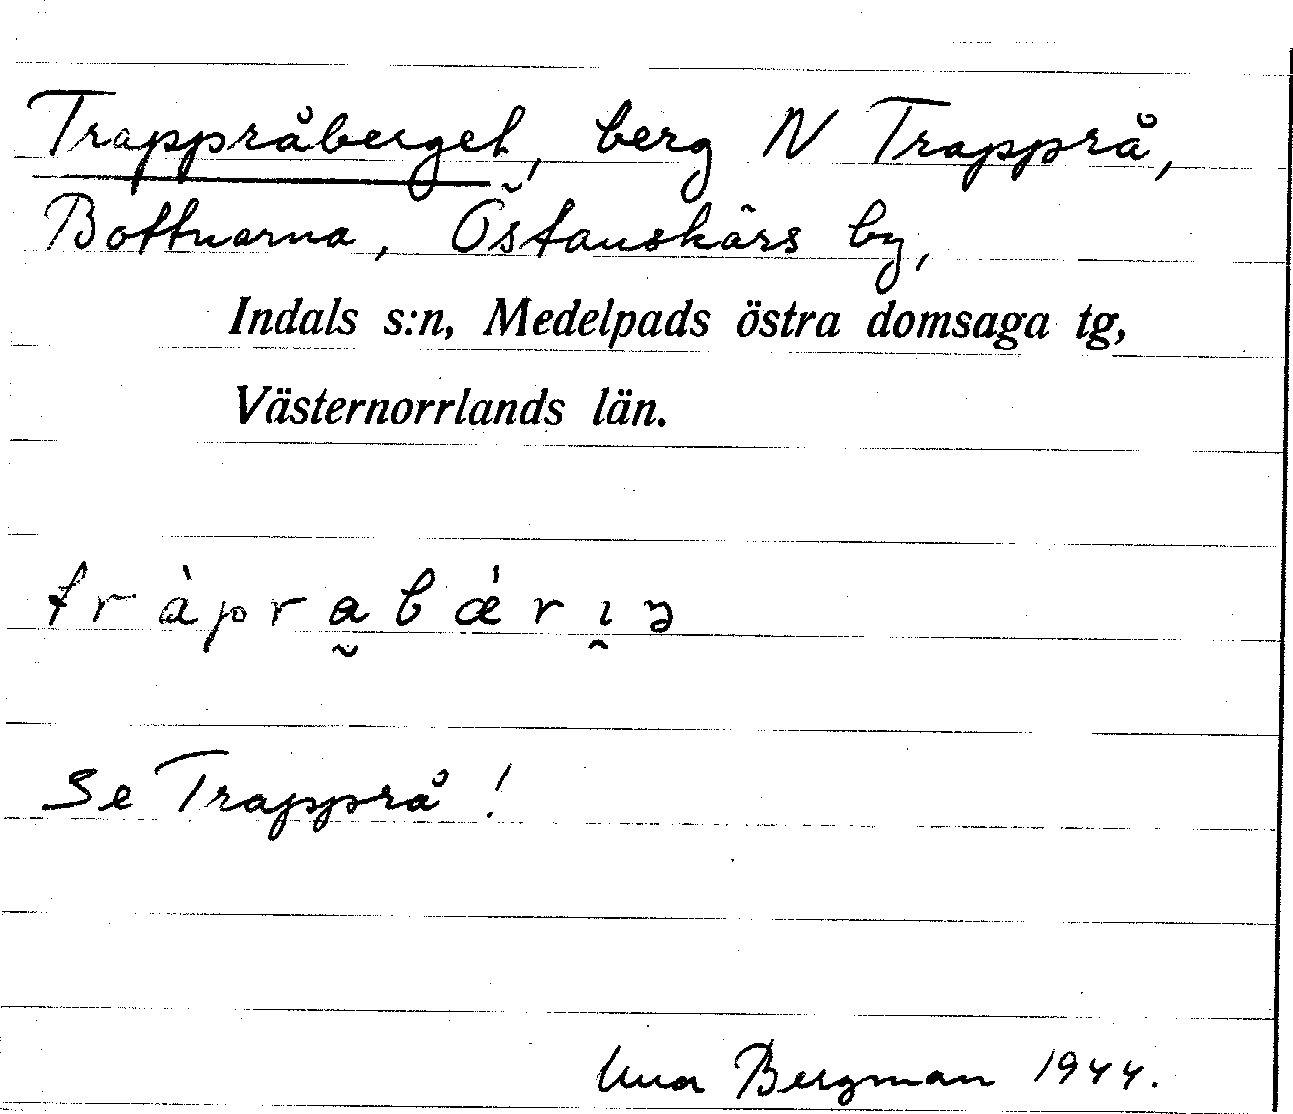 Trappråberget, berg N Trapprå,
Bottnarna, Östanskärs by,
Indals s:n, Medelpads östra domsaga tg,
Västernorrlands län.
tràpra̰bǽrı̯ə
Se Trapprå!
Bergman 1944.